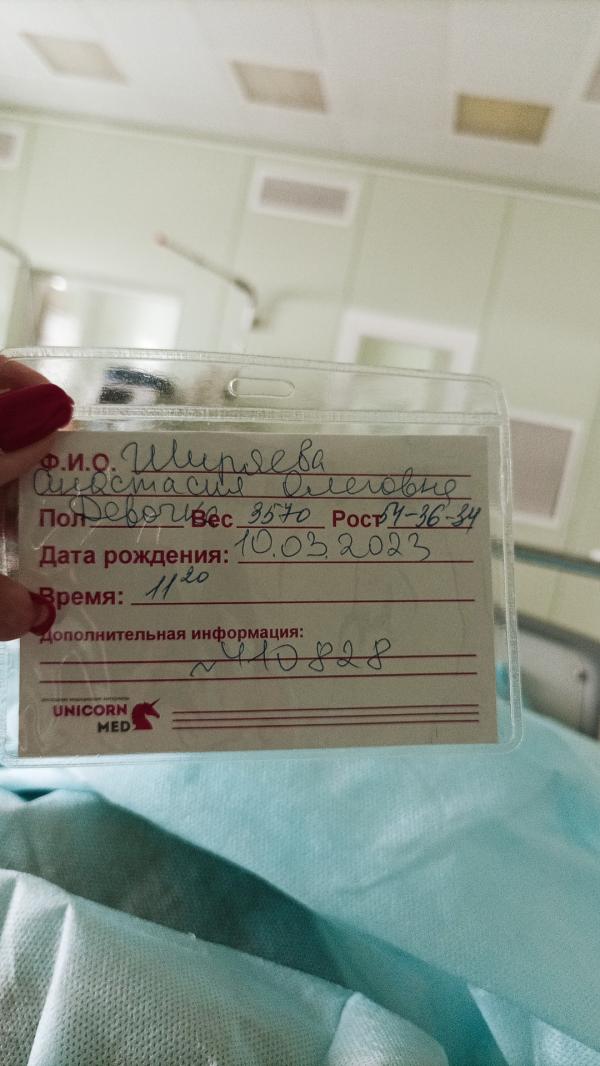 Ф.И.О. Ширяева
Анастасия Олеговна
Пол Девочка Вес 3570 Рост 54-36-34
Дата рождения: 10.03.2023
Время: 11²⁰
Дополнительная информация:
№410828
UNICORN
MED